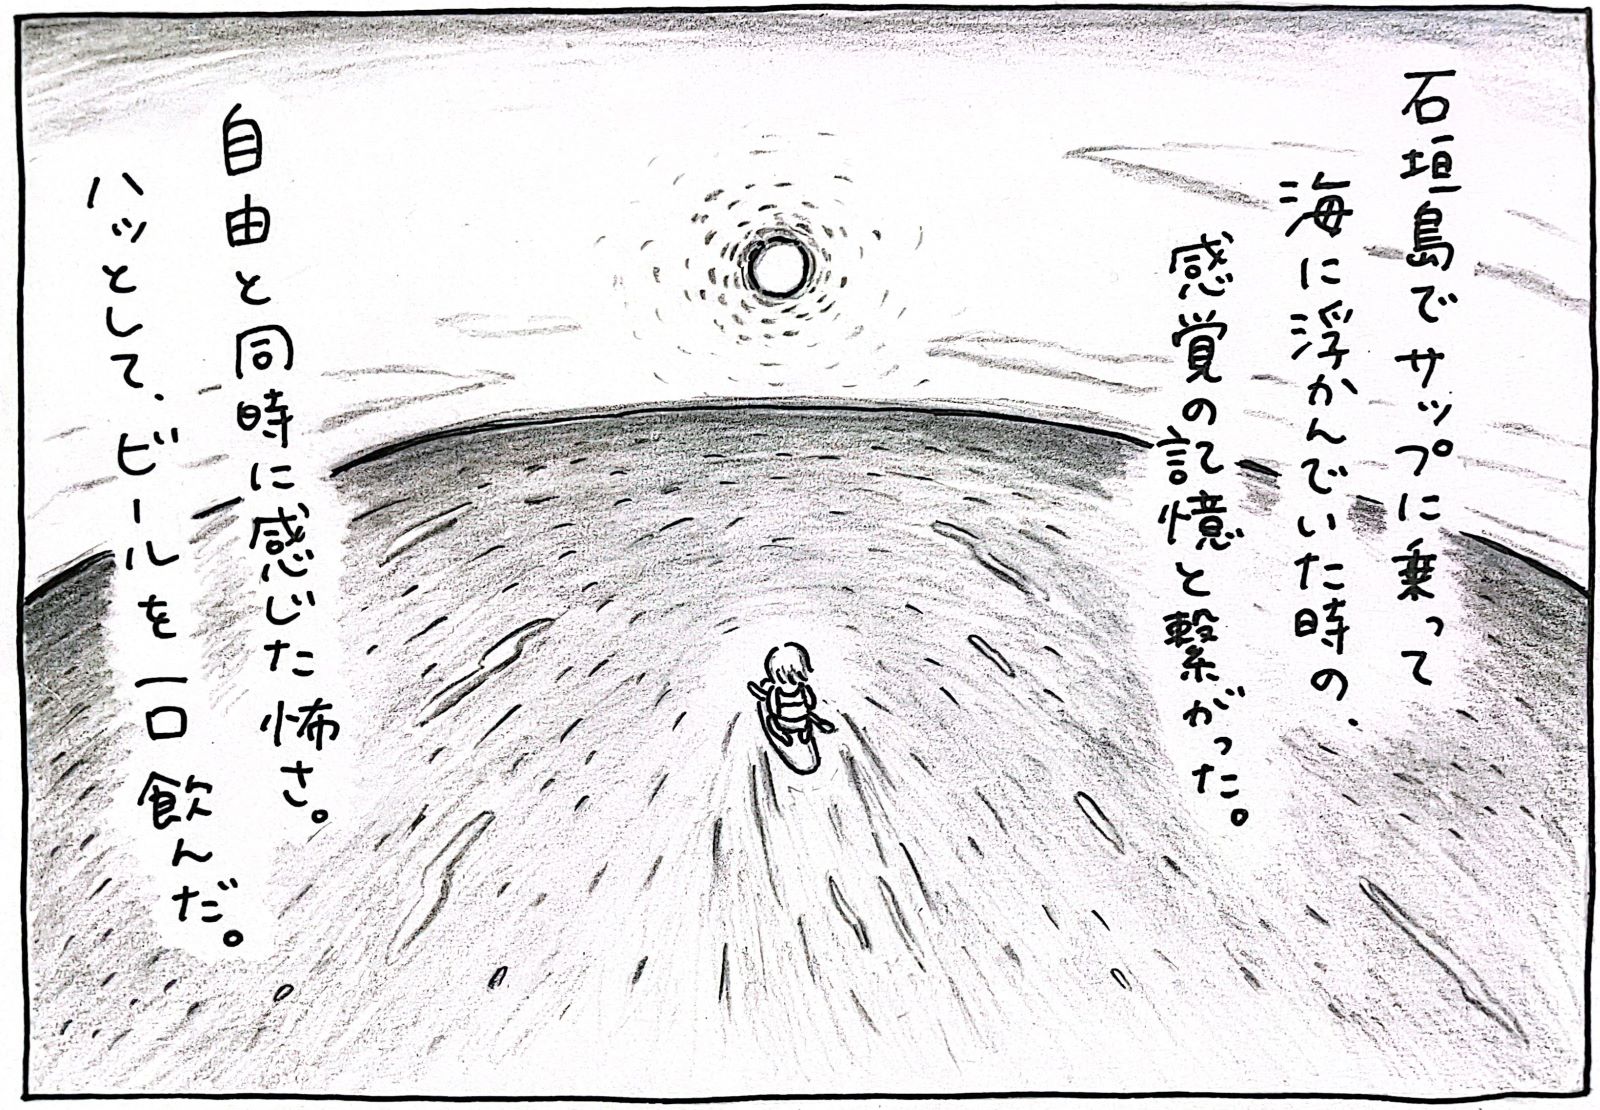 石垣島でサップに乗って
海に浮かんでいた時の、
感覚の記憶と繋がった。
自由と同時に感じた怖さ。
ハッとして、ビールを一口飲んだ。